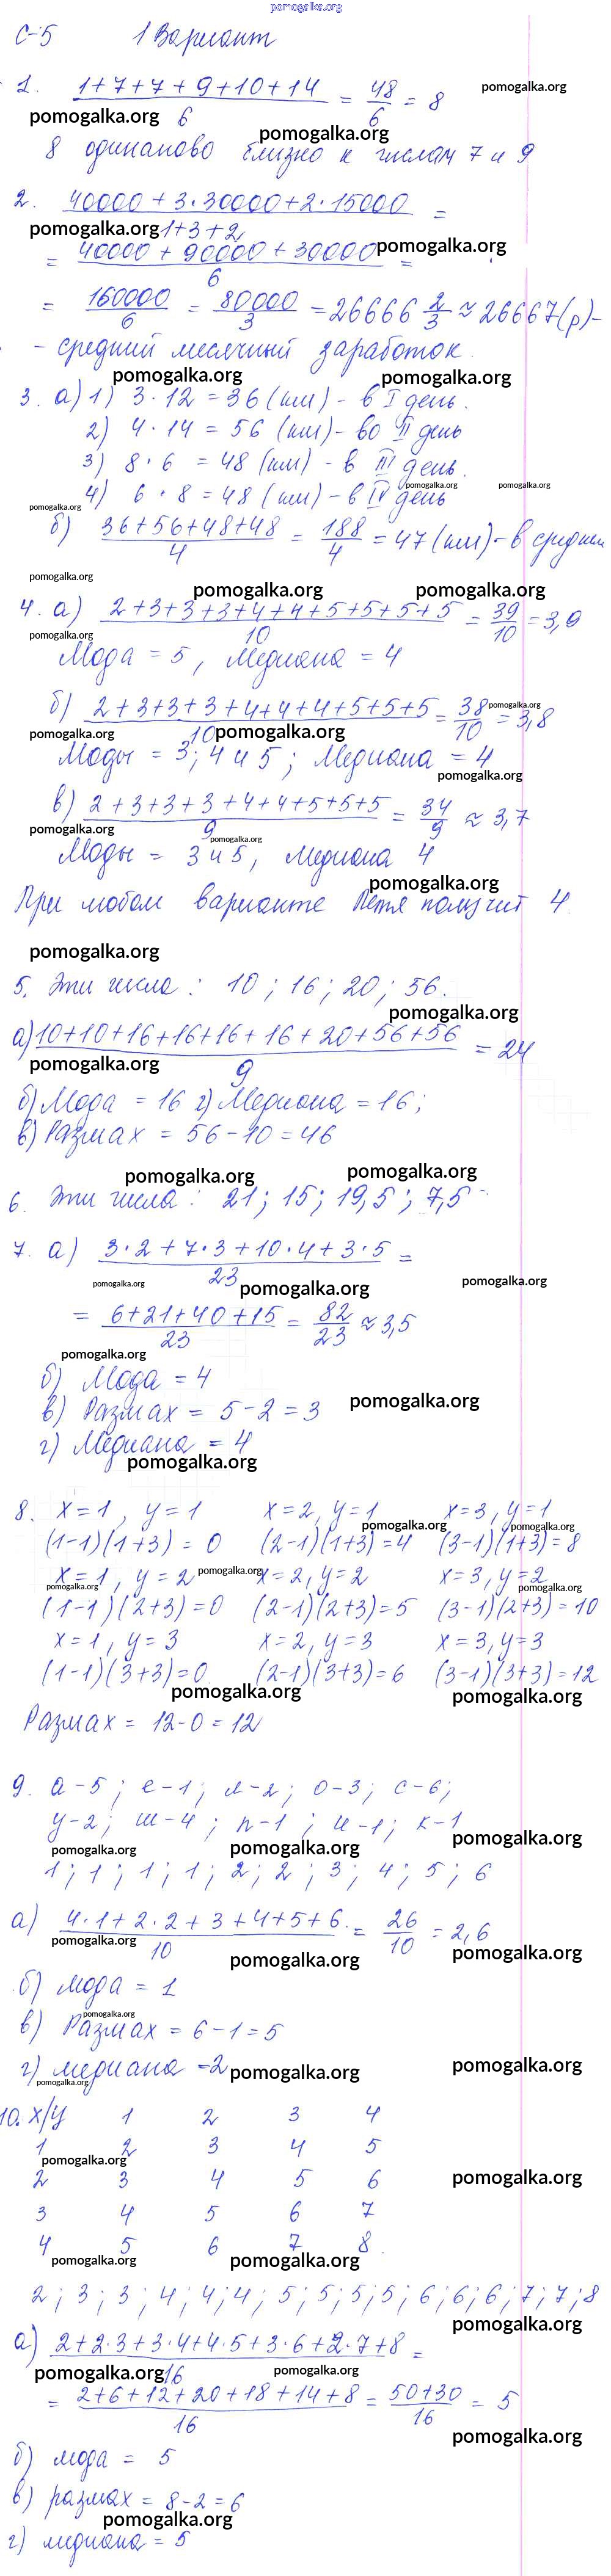 pomogalka.org
С-5 1 Вариант
1. 1+7+7+9+10+14 / 6 = 48/6 = 8
pomogalka.org
pomogalka.org
pomogalka.org
8 одинаково близко к числам 7 и 9
2. 40000 + 3·30000 + 2·15000 / 1+3+2 =
pomogalka.org
= 40000 + 90000 + 30000 / 6 =
pomogalka.org
= 160000/6 = 80000/3 = 26666 2/3 ≈ 26667(р)-
- средний месячный заработок.
pomogalka.org
pomogalka.org
3. а) 1) 3·12 = 36 (км) - в I день.
2) 4·14 = 56 (км) - во II день
3) 8·6 = 48 (км) - в III день.
pomogalka.org
pomogalka.org
4) 6·8 = 48 (км) - в IV день
pomogalka.org
б) 36+56+48+48 / 4 = 188/4 = 47 (км) - в среднем
pomogalka.org
pomogalka.org
pomogalka.org
4. а) 2+3+3+3+4+4+5+5+5+5 / 10 = 39/10 = 3,9
pomogalka.org
Мода = 5, Медиана = 4
б) 2+3+3+3+4+4+4+5+5+5 / 10 = 38/10 = 3,8
pomogalka.org
pomogalka.org
pomogalka.org
Моды = 3; 4 и 5; Медиана = 4
pomogalka.org
в) 2+3+3+3+4+4+5+5+5 / 9 = 34/9 ≈ 3,7
pomogalka.org
pomogalka.org
Моды = 3 и 5, Медиана 4
pomogalka.org
При любом варианте Петя получит 4.
pomogalka.org
5. Эти числа: 10; 16; 20; 56.
pomogalka.org
а) 10+10+16+16+16+16+20+56+56 / 9 = 24
pomogalka.org
б) Мода = 16 г) Медиана = 16;
в) Размах = 56-10 = 46
pomogalka.org
pomogalka.org
6. Эти числа: 21; 15; 19,5; 7,5
7. а) 3·2 + 7·3 + 10·4 + 3·5 / 23 =
pomogalka.org
pomogalka.org
pomogalka.org
= 6+21+40+15 / 23 = 82/23 ≈ 3,5
pomogalka.org
б) Мода = 4
в) Размах = 5-2 = 3
pomogalka.org
г) Медиана = 4
pomogalka.org
8. x=1, y=1 x=2, y=1 x=3, y=1
pomogalka.org
pomogalka.org
(1-1)(1+3) = 0 (2-1)(1+3)=4 (3-1)(1+3)=8
pomogalka.org
x=1, y=2 x=2, y=2 x=3, y=2
pomogalka.org
pomogalka.org
(1-1)(2+3)=0 (2-1)(2+3)=5 (3-1)(2+3)=10
x=1, y=3 x=2, y=3 x=3, y=3
(1-1)(3+3)=0 (2-1)(3+3)=6 (3-1)(3+3)=12
pomogalka.org
pomogalka.org
Размах = 12-0 = 12
9. а-5; е-1; л-2; о-3; с-6;
у-2; ш-4; п-1; и-1; к-1
pomogalka.org
pomogalka.org
pomogalka.org
1; 1; 1; 1; 2; 2; 3; 4; 5; 6
а) 4·1+2·2+3+4+5+6 / 10 = 26/10 = 2,6
pomogalka.org
pomogalka.org
pomogalka.org
б) мода = 1
pomogalka.org
в) Размах = 6-1 = 5
г) медиана -2
pomogalka.org
pomogalka.org
pomogalka.org
10. x/y 1 2 3 4
1 2 3 4 5
pomogalka.org
2 3 4 5 6
pomogalka.org
3 4 5 6 7
4 5 6 7 8
pomogalka.org
pomogalka.org
2; 3; 3; 4; 4; 4; 5; 5; 5; 5; 6; 6; 6; 7; 7; 8
pomogalka.org
а) 2+2·3+3·4+4·5+3·6+2·7+8 / 16 =
pomogalka.org
pomogalka.org
= 2+6+12+20+18+14+8 / 16 = 50+30 / 16 = 5
pomogalka.org
б) мода = 5
в) размах = 8-2 = 6
pomogalka.org
г) медиана = 5